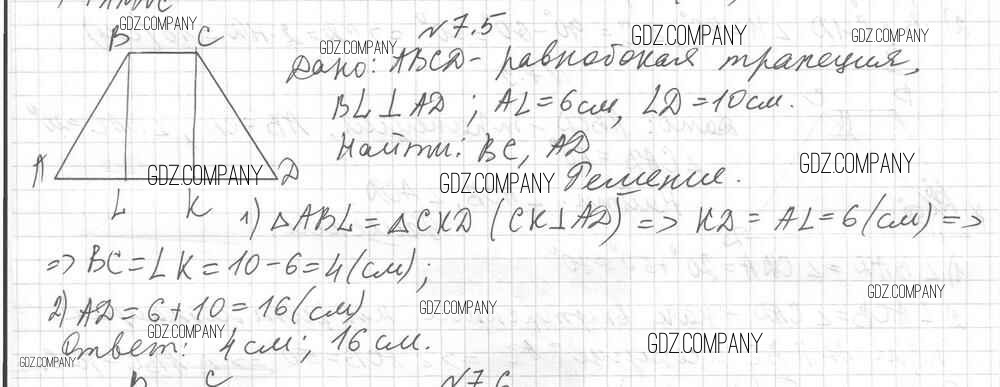 GDZ.COMPANY
№7.5
B C
GDZ.COMPANY GDZ.COMPANY GDZ.COMPANY
Дано: ABCD - равнобокая трапеция,
BL ⊥ AD ; AL = 6 см, LD = 10 см.
Найти: BC, AD
A D
GDZ.COMPANY GDZ.COMPANY Решение. GDZ.COMPANY
L K
1) △ABL = △CKD (CK⊥AD) => KD = AL = 6 (см) =>
=> BC = LK = 10 - 6 = 4 (см);
2) AD = 6 + 10 = 16 (см)
GDZ.COMPANY GDZ.COMPANY GDZ.COMPANY
Ответ: 4 см; 16 см.
GDZ.COMPANY GDZ.COMPANY
B C №7.6